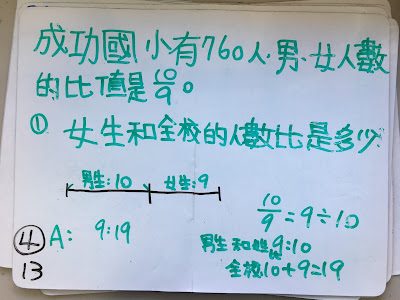 成功國小有760人,男、女人數
的比值是10/9。
① 女生和全校的人數比是多少
男生:10 女生:9
10/9=9÷10
A: 9:19
男生和女生比9:10
全校10+9=19
④
13